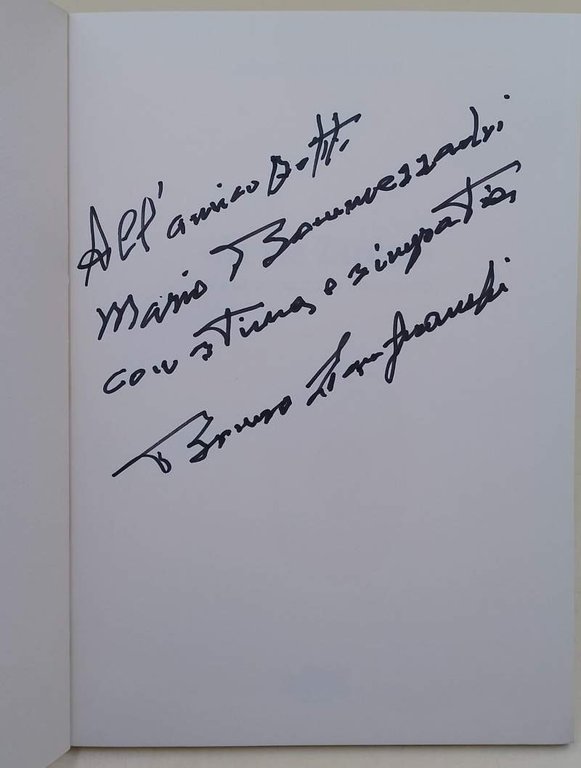 All'amico Dott.
Mario
con stima e simpatia
Bruno Lanfranchi